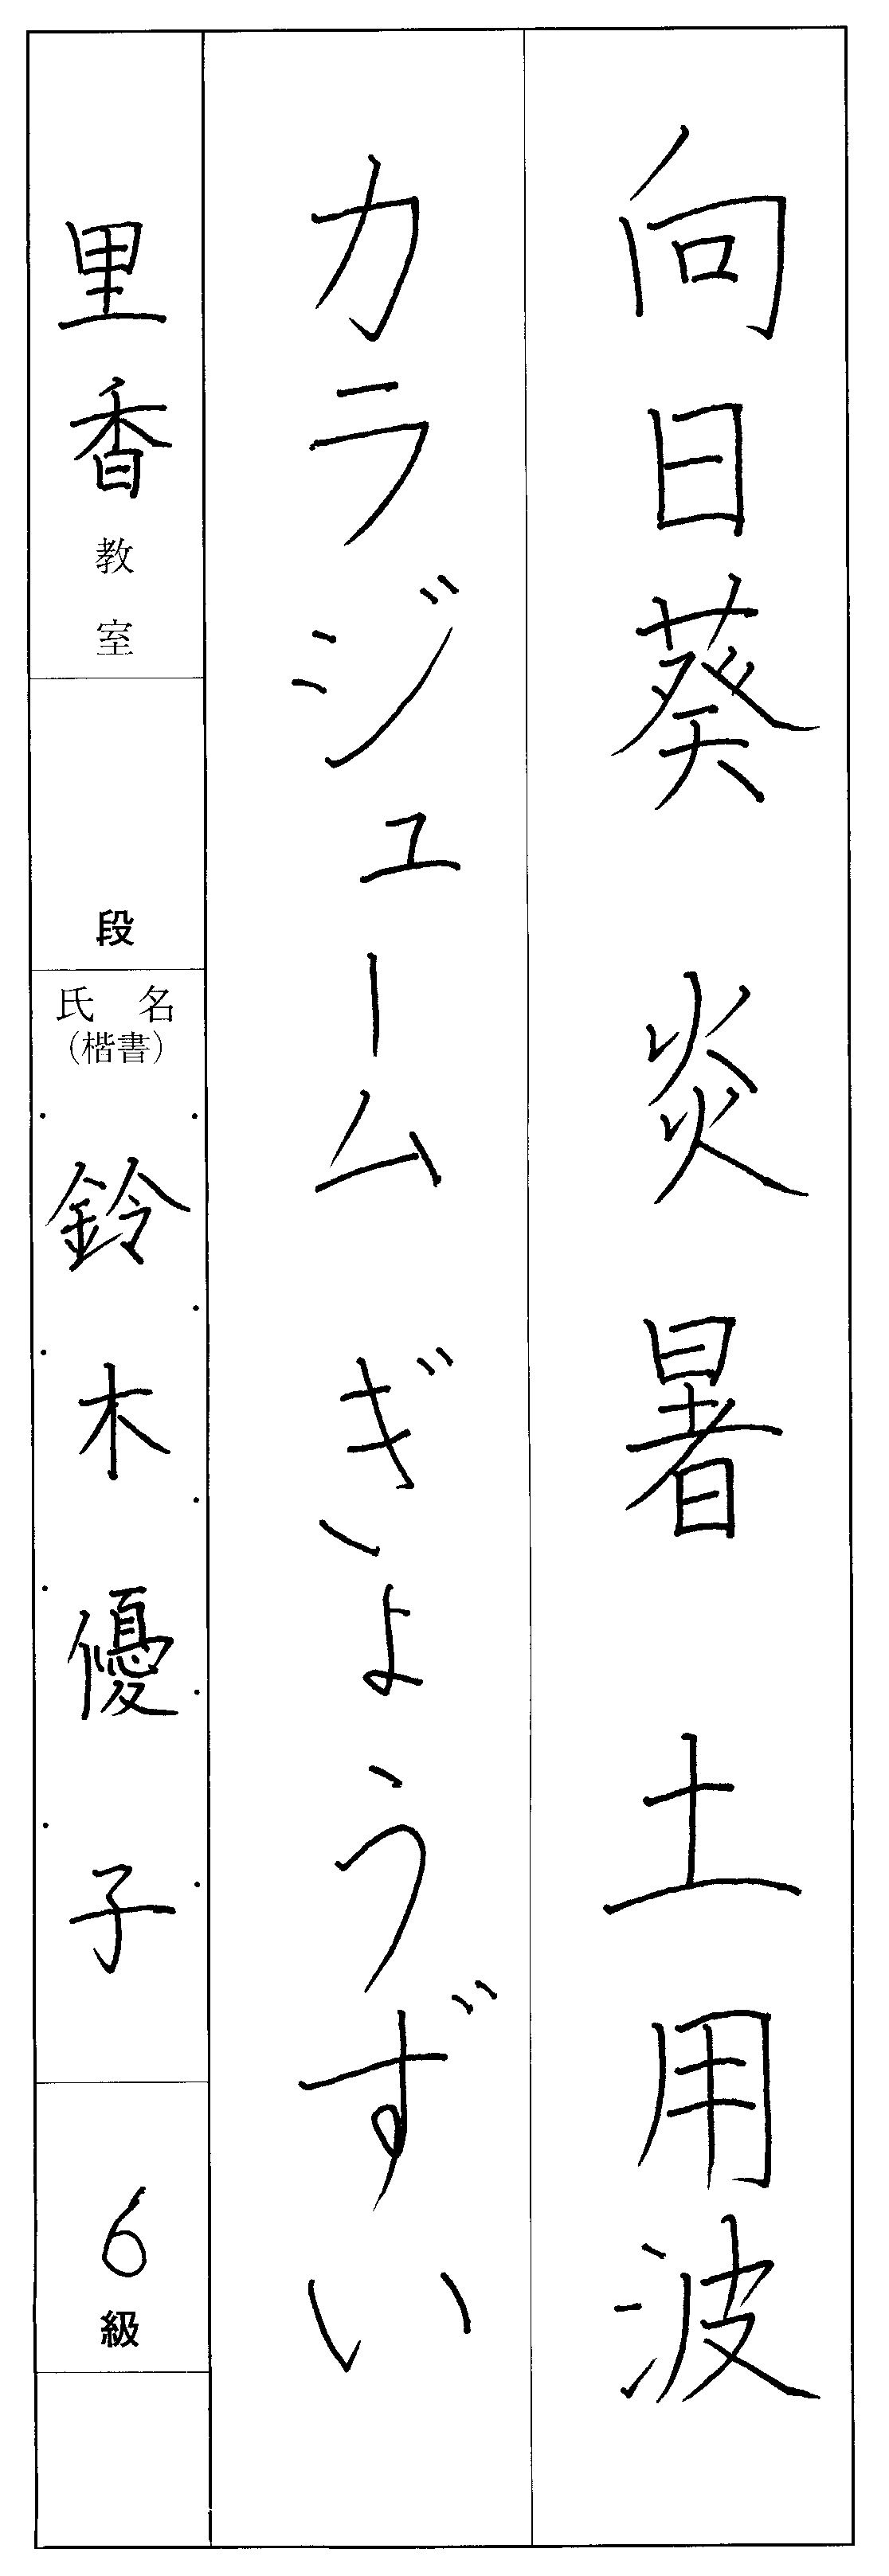 向日葵 炎暑 土用波
カラジューム ぎょうずい
里香教室
段
氏名
(楷書)
鈴木優子
6級